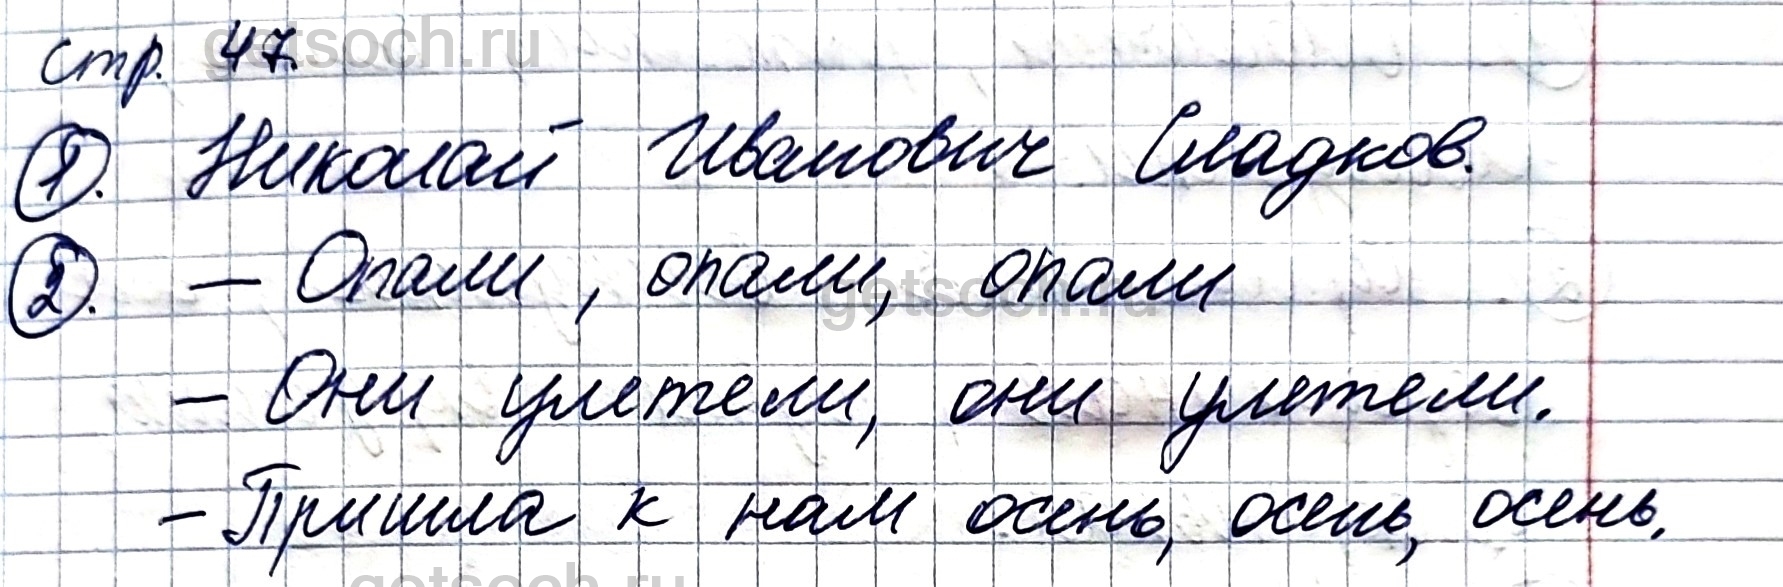 стр. 47.
1. Николай Иванович Сладков.
2. – Опали, опали, опали
– Они улетели, они улетели.
– Пришла к нам осень, осень, осень.
getsoch.ru
getsoch.ru
getsoch.ru